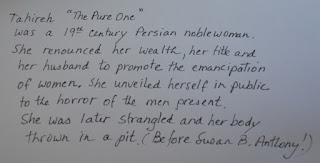 Tahireh "The Pure One"
was a 19th century Persian noblewoman.
She renounced her wealth, her title and
her husband to promote the emancipation
of women. She unveiled herself in public
to the horror of the men present.
She was later strangled and her body
thrown in a pit. (Before Susan B. Anthony!)